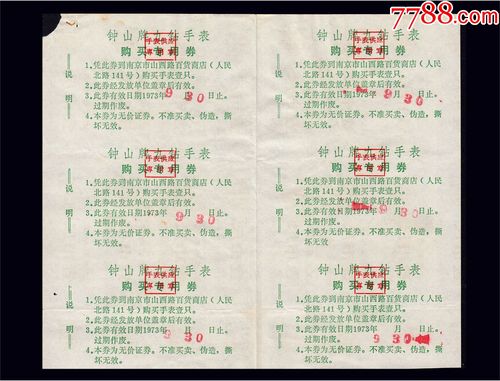 7788.com
钟山牌九钻手表
购买专用券
手表供应
专章
说明
1.凭此券到南京市山西路百货商店(人民
北路141号)购买手表壹只。
2.此券经发放单位盖章后有效。
3.此券有效日期1973年9月30日止。
过期作废。
4.本券为无价证券。不准买卖、伪造,撕
坏无效。
钟山牌九钻手表
购买专用券
手表供应
专章
说明
1.凭此券到南京市山西路百货商店(人民
北路141号)购买手表壹只。
2.此券经发放单位盖章后有效。
3.此券有效日期1973年9月30日止。
过期作废。
4.本券为无价证券。不准买卖、伪造,撕
坏无效。
钟山牌九钻手表
购买专用券
手表供应
专章
说明
1.凭此券到南京市山西路百货商店(人民
北路141号)购买手表壹只。
2.此券经发放单位盖章后有效。
3.此券有效日期1973年9月30日止。
过期作废。
4.本券为无价证券。不准买卖、伪造,撕
坏无效。
钟山牌九钻手表
购买专用券
手表供应
专章
说明
1.凭此券到南京市山西路百货商店(人民
北路141号)购买手表壹只。
2.此券经发放单位盖章后有效。
3.此券有效日期1973年9月30日止。
过期作废。
4.本券为无价证券。不准买卖、伪造,撕
坏无效。
钟山牌九钻手表
购买专用券
手表供应
专章
说明
1.凭此券到南京市山西路百货商店(人民
北路141号)购买手表壹只。
2.此券经发放单位盖章后有效。
3.此券有效日期1973年9月30日止。
过期作废。
4.本券为无价证券。不准买卖、伪造,撕
坏无效。
钟山牌九钻手表
购买专用券
手表供应
专章
说明
1.凭此券到南京市山西路百货商店(人民
北路141号)购买手表壹只。
2.此券经发放单位盖章后有效。
3.此券有效日期1973年9月30日止。
过期作废。
4.本券为无价证券。不准买卖、伪造,撕
坏无效。